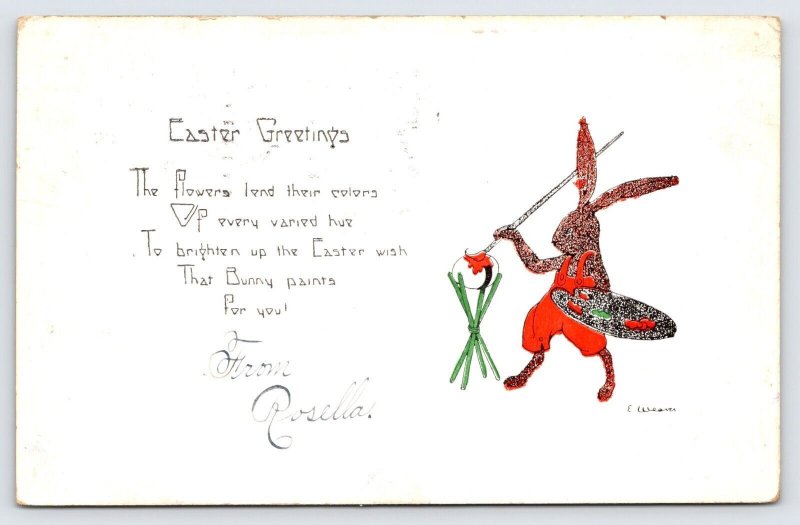 Easter Greetings
The flowers lend their colors
Of every varied hue
To brighten up the Easter wish
That Bunny paints
For you!
From
Rosella.
E Weaver